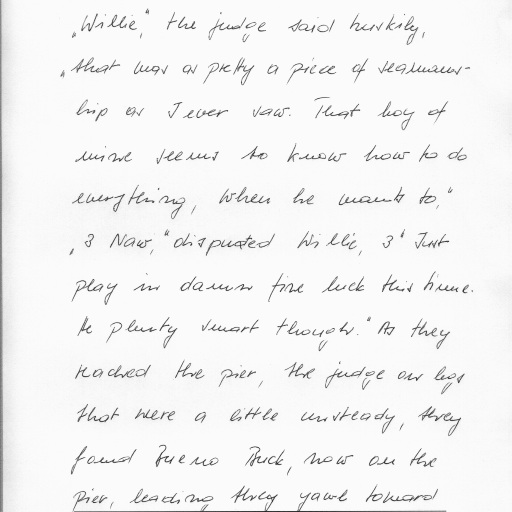 „Willie," the judge said huskily,
„that was as pretty a piece of seamans-
hip as I ever saw. That boy of
mine seems to know how to do
everything, when he wants to."
„3 Naw," disputed Willie, 3" Just
play in damn fine luck this time.
He plenty smart though." As they
reached the pier, the judge on legs
that were a little unsteady, they
found Bueno Buck, now on the
pier, leading they yawl toward